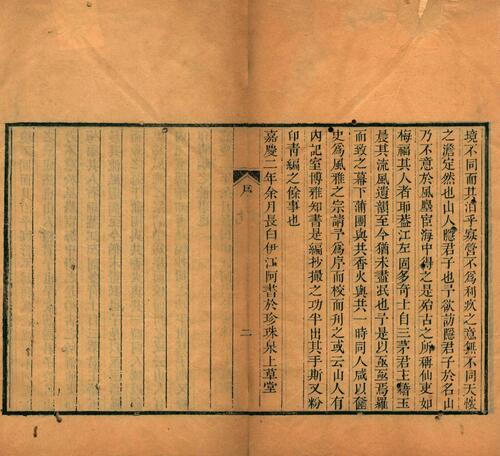 境不同而其泊乎寂營不爲利疚之意無不同天懷
之澹定然也山人隱君子也予欲訪隱君子於名山
乃不意於風塵宦海中得之是殆古之所稱仙吏如
梅福其人者耶蓋江左固多奇士自三茅君主籍玉
晨其流風遺韻至今猶未盡泯也予是以亟亟焉羅
而致之幕下蒲團與共香火與共一時同人咸以奮
史爲風雅之宗請予爲序而校而刋之或云山人有
內記室博雅知書是編抄撮之功半出其手斯又粉
印靑編之餘事也
嘉慶二年余月長白伊江阿書於珍珠泉上草堂
序
二